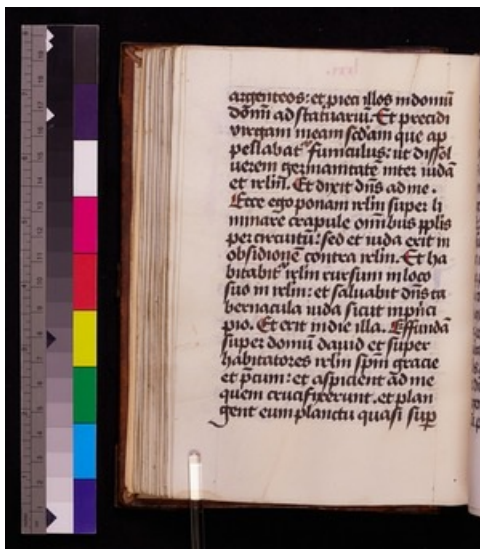 argenteos: et pieci illos in domū
dōni ad statuariū. Et precidi
virgam meam scdam que ap
pellabat᷑ funiculus: ut dissol
uerem germanitatē inter iudā
et irlm̄. Et dixit dn̄s ad me.
Ecce ego ponam irlm̄ super li
minare crapule omībus pplis
per circuitū: sed et iuda erit in
obsidionē contra irlm̄. Et ha
bitabit᷑ irlm̄ rursum in loco
suo in irlm̄: et saluabit dn̄s ta
bernacula iuda sicut in pn̄ci
pio. Et erit in die illa. Effundā
super domū dauid et super
habitatores irlm̄ spm̄ gracie
et p̄cum: et aspicient ad me
quem crucifixerunt. et plan
gent eum planctu quasi sup̄